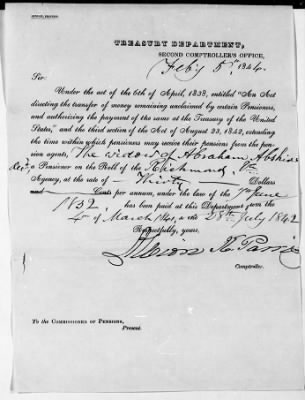 TREASURY DEPARTMENT,
SECOND COMPTROLLER'S OFFICE,
Feb'y 5th, 1844.
Sir:
Under the act of the 6th of April, 1838, entitled "An Act
directing the transfer of money remaining unclaimed by certain Pensioners,
and authorizing the payment of the same at the Treasury of the United
States," and the third section of the Act of August 23, 1842, extending the
time within which pensioners may receive their pensions from the pen-
sion agents, The widow of Abraham Abshire
decd a Pensioner on the Roll of the Richmond, Va
Agency, at the rate of Thirty Dollars
and — Cents per annum, under the law of the 7th June
1832 has been paid at this Department from the
4th of March 1841, to the 28th July 1842
Respectfully, yours,
Albion K. Parris
Comptroller.
To the COMMISSIONER OF PENSIONS,
Present.